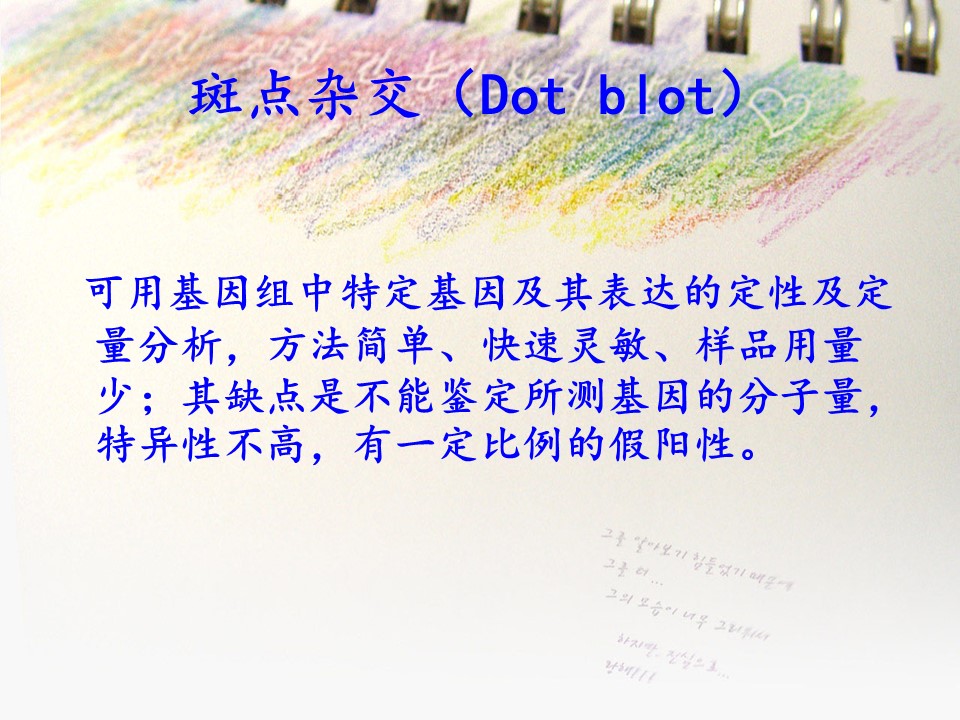 斑点杂交（Dot blot）
可用基因组中特定基因及其表达的定性及定
量分析，方法简单、快速灵敏、样品用量
少；其缺点是不能鉴定所测基因的分子量，
特异性不高，有一定比例的假阳性。
그를 알아보기 힘들었기 때문에
그를 더...
그의 모습이 너무 그리워서
하지만.. 진심으로...